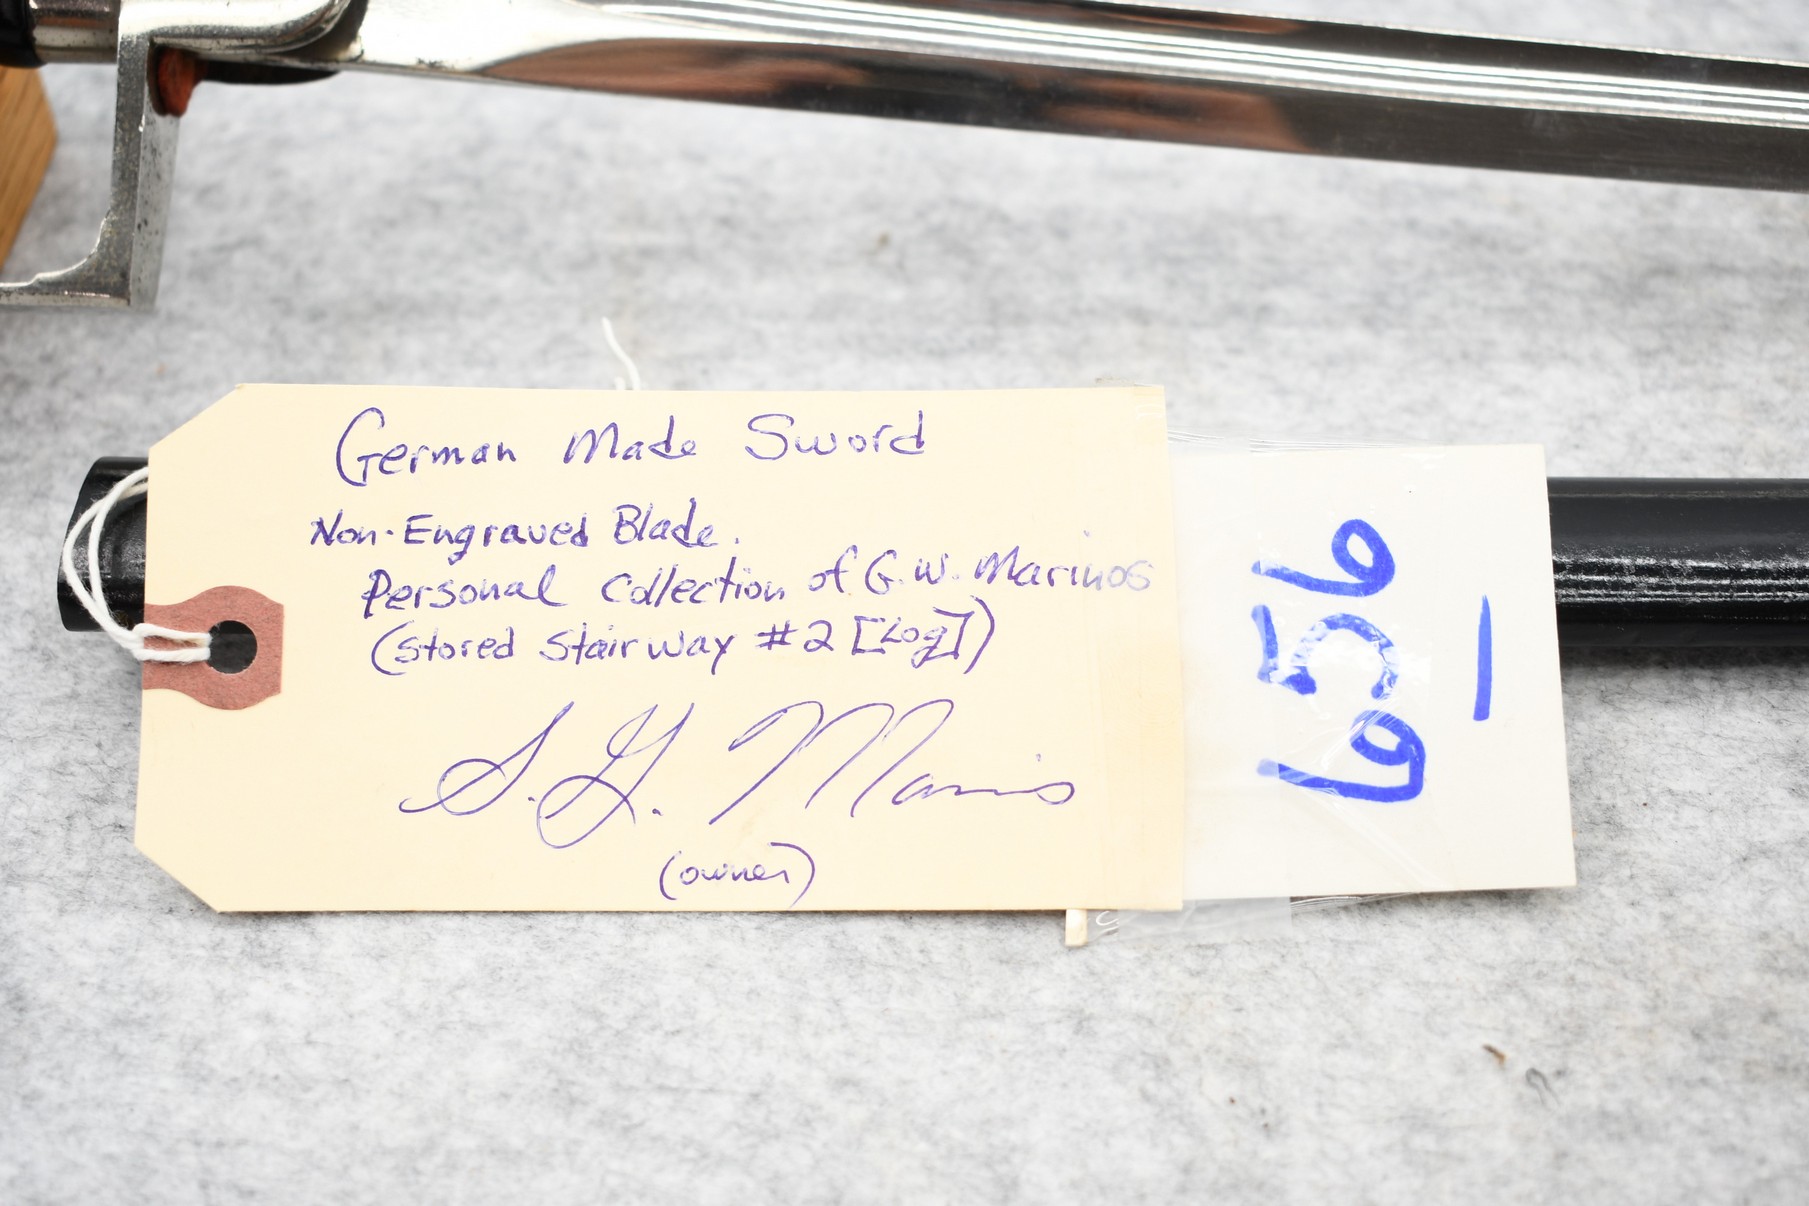 German Made Sword
Non-Engraved Blade.
Personal Collection of G.W. Marinos
(stored Stairway #2 [Log])
(owner)
656